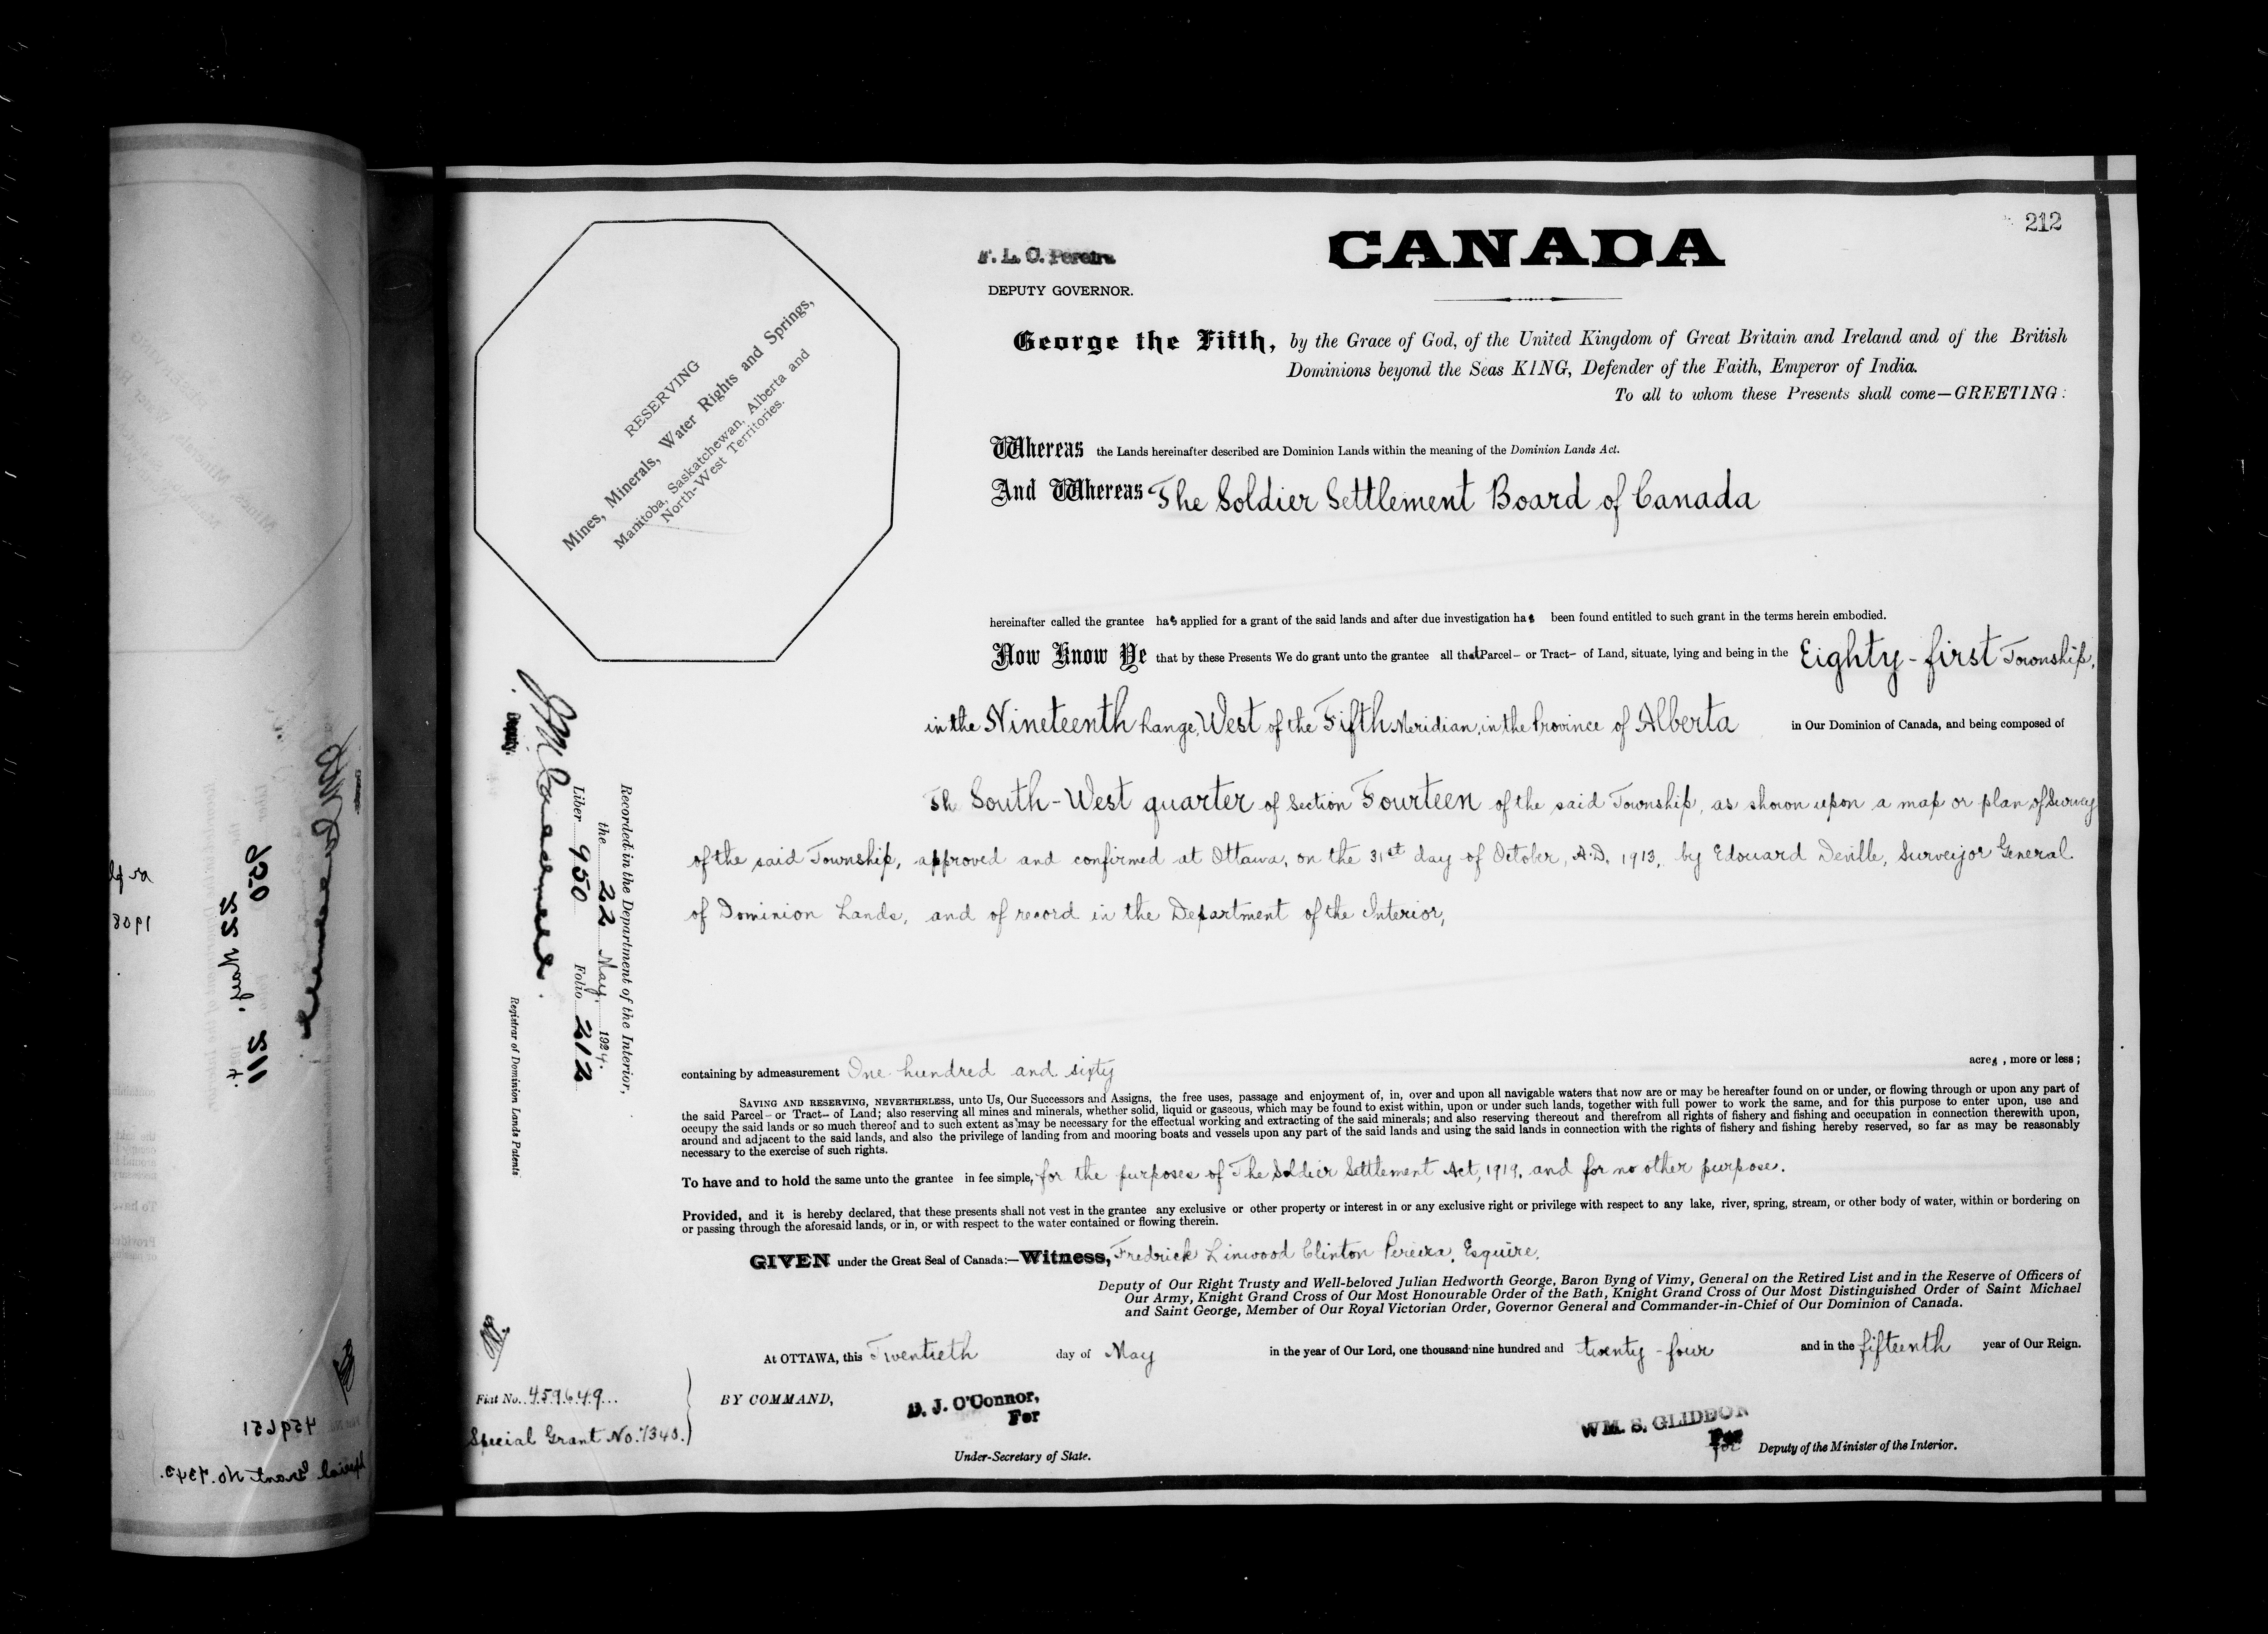 212
F. L. C. Pereira
DEPUTY GOVERNOR.
CANADA
George the Fifth, by the Grace of God, of the United Kingdom of Great Britain and Ireland and of the British
Dominions beyond the Seas KING, Defender of the Faith, Emperor of India.
To all to whom these Presents shall come—GREETING:
RESERVING
Mines, Minerals, Water Rights and Springs,
Manitoba, Saskatchewan, Alberta and
North-West Territories.
Whereas the Lands hereinafter described are Dominion Lands within the meaning of the Dominion Lands Act.
And Whereas The Soldier Settlement Board of Canada
hereinafter called the grantee has applied for a grant of the said lands and after due investigation has been found entitled to such grant in the terms herein embodied.
Now Know Ye that by these Presents We do grant unto the grantee all that Parcel – or Tract – of Land, situate, lying and being in the Eighty-first Township,
in the Nineteenth Range, West of the Fifth Meridian, in the Province of Alberta in Our Dominion of Canada, and being composed of
Th South-West quarter of Section Fourteen of the said Township, as shown upon a map or plan of Survey
of the said Township, approved and confirmed at Ottawa, on the 31st day of October, A.D. 1913, by Edouard Deville, Surveyor General
of Dominion Lands, and of record in the Department of the Interior,
containing by admeasurement One hundred and sixty acres, more or less;
SAVING AND RESERVING, NEVERTHELESS, unto Us, Our Successors and Assigns, the free uses, passage and enjoyment of, in, over and upon all navigable waters that now are or may be hereafter found on or under, or flowing through or upon any part of
the said Parcel – or Tract – of Land; also reserving all mines and minerals, whether solid, liquid or gaseous, which may be found to exist within, upon or under such lands, together with full power to work the same, and for this purpose to enter upon, use and
occupy the said lands or so much thereof and to such extent as may be necessary for the effectual working and extracting of the said minerals; and also reserving thereout and therefrom all rights of fishery and fishing and occupation in connection therewith upon,
around and adjacent to the said lands, and also the privilege of landing from and mooring boats and vessels upon any part of the said lands and using the said lands in connection with the rights of fishery and fishing hereby reserved, so far as may be reasonably
necessary to the exercise of such rights.
To have and to hold the same unto the grantee in fee simple, for the purposes of The Soldier Settlement Act, 1919, and for no other purpose.
Provided, and it is hereby declared, that these presents shall not vest in the grantee any exclusive or other property or interest in or any exclusive right or privilege with respect to any lake, river, spring, stream, or other body of water, within or bordering on
or passing through the aforesaid lands, or in, or with respect to the water contained or flowing therein.
GIVEN under the Great Seal of Canada:—Witness, Fredrick Linwood Clinton Pereira, Esquire,
Deputy of Our Right Trusty and Well-beloved Julian Hedworth George, Baron Byng of Vimy, General on the Retired List and in the Reserve of Officers of
Our Army, Knight Grand Cross of Our Most Honourable Order of the Bath, Knight Grand Cross of Our Most Distinguished Order of Saint Michael
and Saint George, Member of Our Royal Victorian Order, Governor General and Commander-in-Chief of Our Dominion of Canada.
At OTTAWA, this Twentieth day of May in the year of Our Lord, one thousand nine hundred and twenty-four and in the fifteenth year of Our Reign.
BY COMMAND,
D. J. O'Connor,
For
Under-Secretary of State.
WM. S. GLIDDON
For
for Deputy of the Minister of the Interior.
Recorded in the Department of the Interior,
the 22 May, 1924.
Liber 950 Folio 212
Deputy.
Registrar of Dominion Lands Patents
Fiat No. 459649
Special Grant No. 7340.
950
22 May,
211
1908
459651
Special Grant No. 7343.